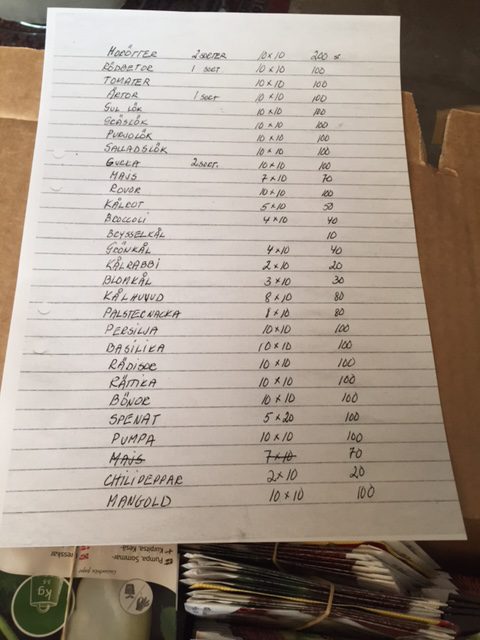 MORÖTTER 2 SORTER 10×10 200 st
RÖDBETOR 1 SORT 10×10 100
TOMATER 10×10 100
ÄRTOR 1 SORT 10×10 100
GUL LÖK 10×10 100
GRÄSLÖK 10×10 100
PURJOLÖK 10×10 100
SALLADSLÖK 10×10 100
GURKA 2 SORT. 10×10 100
MAJS 7×10 70
ROVOR 10×10 100
KÅLROT 5×10 50
BROCCOLI 4×10 40
BRYSSELKÅL 10
GRÖNKÅL 4×10 40
KÅLRABBI 2×10 20
BLOMKÅL 3×10 30
KÅLHUVUD 8×10 80
PALSTERNACKA 8×10 80
PERSILJA 10×10 100
BASILIKA 10×10 100
RÄDISOR 10×10 100
RÄTTIKA 10×10 100
BÖNOR 10×10 100
SPENAT 5×20 100
PUMPA 10×10 100
MAJS 7×10 70
CHILIPEPPAR 2×10 20
MANGOLD 10×10 100
Pumpa, Sommar-
Kg